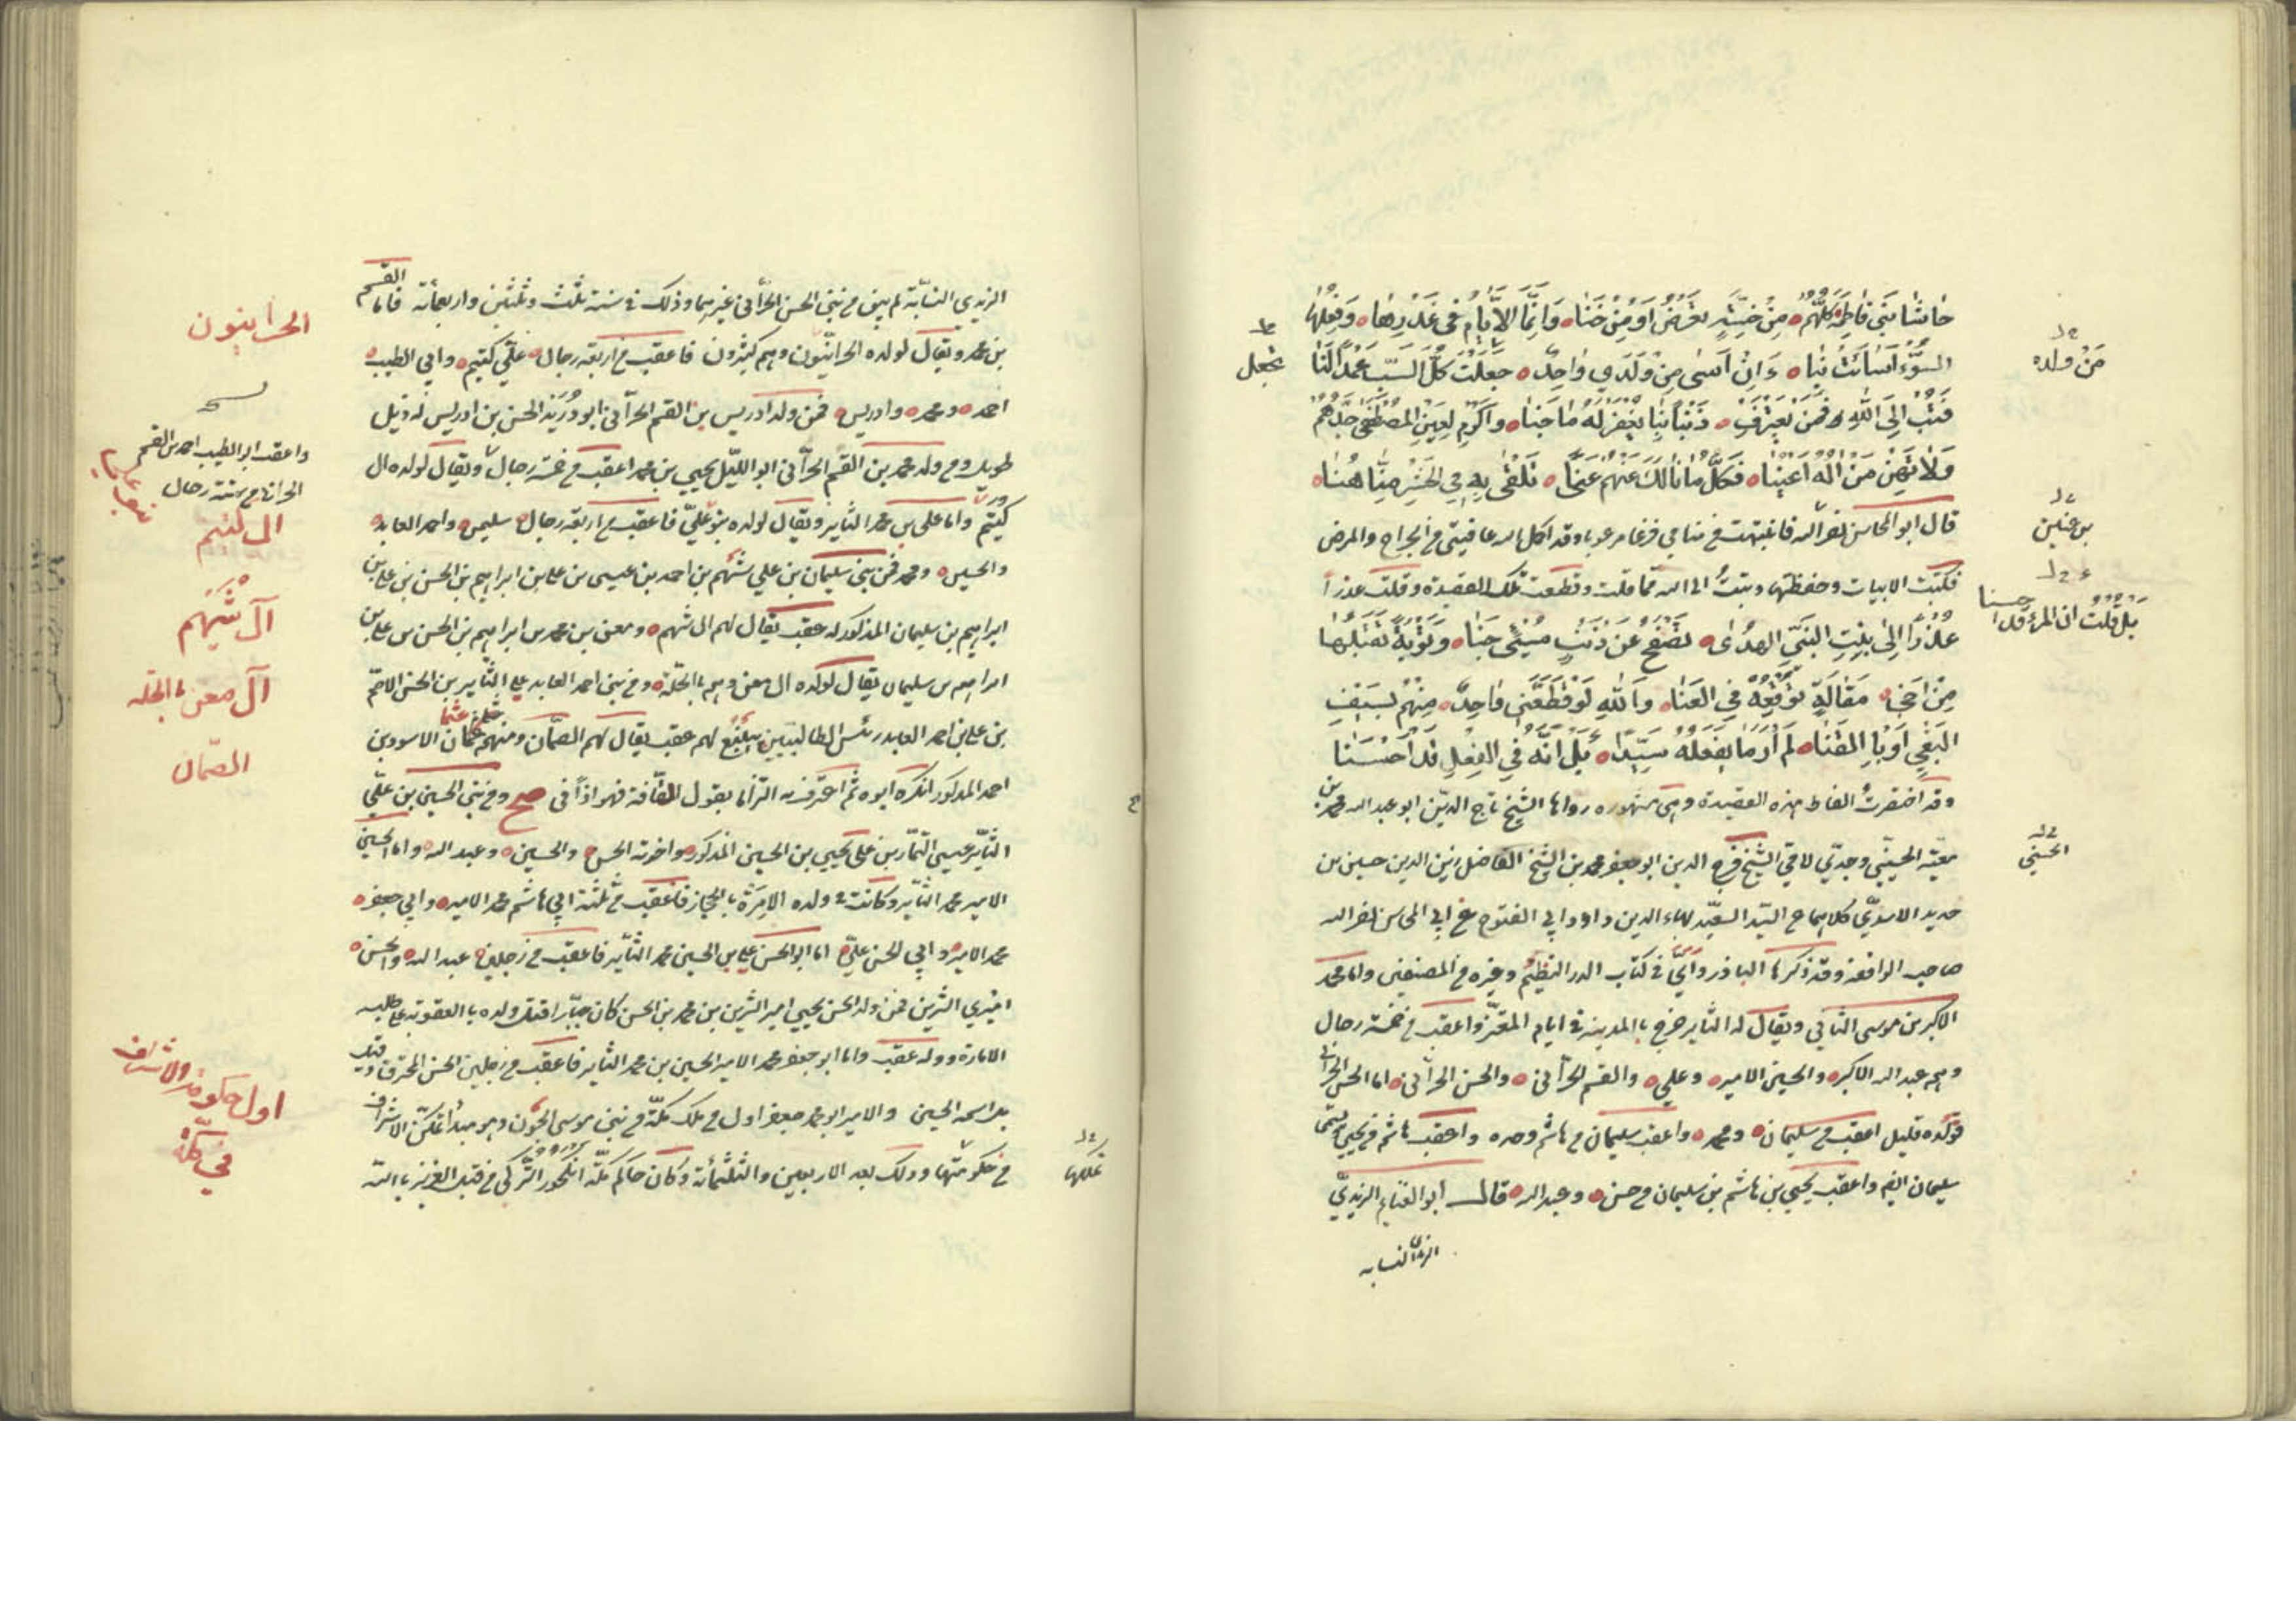 حاشا بني فاطمة كلهم من خسة تعرض او من خنا وانما الايام في غدرها وفعلها
السوء اسائت بنا وان اسى من ولدي واحد جعلت كل السب عمدا لنا
من ولده
تجعل
فتب الى الله فمن يعترف ذنبا بنا يغفر له ما جنا واكرم لعين المصطفى جدهم
ولا تهن من اله اعينا فكل ما نالك عنهم عنا تلقى به في الحشر منا هنا
قال ابو المحاسن نصر الله فانتبهت من منامي فزعا مرعوبا وقد اكمل الله عافيتي من الجراح والمرض
فكتبت الابيات وحفظتها وتبت الى الله مما قلت وقطعت تلك القصيدة وقلت عذرا
بن عنين
عذرا الى بنت النبي الهدى تصفح عن ذنب مسيئ جنا وتوبة تقبلها
من اخي مقالة توقعه في العنا والله لو قطعني واحد منهم بسيف
البغي او بالقنا لم ار ما يفعله سيئا بل انه في الفعل قد احسنا
بل قلت ان المرء قد احسنا
وقد اختصرت الفاظ هذه القصيدة وهي مشهورة رواها الشيخ تاج الدين ابو عبد الله محمد بن
معية الحسيني وجدي لامي الشيخ فخر الدين ابو جعفر محمد بن الشيخ الفاضل زين الدين حسين بن
الحسني
حديد الاسدي كلاهما عن السيد السعيد بهاء الدين داود ابي الفتوح عن ابي المحاسن نصر الله
صاحب الواقعة وقد ذكرها الباذرواي في كتاب الدر النظيم وغيره من المصنفين واما محمد
الاكبر بن موسى الثاني ويقال له الثاير خرج بالمدينة في ايام المعتز واعقب من خمسة رجال
وهم عبد الله الاكبر والحسين الامير وعلي والقسم الحراني والحسن الحراني اما الحسن الحراني
فولده قليل اعقب من سليمان ومحمد واعقب سليمان من هاشم وحده واعقب هاشم من يحيى يسمى
سليمان ايضا واعقب يحيى بن هاشم بن سليمان من حسن وعبد الله قال ابو الغنايم الزيدي
النسابه
الزيدي النسابة لم يبق من بني الحسن الحراني غيرهما وذلك في سنة ثلث وثلثين واربعمأئة فاما القسم
بن محمد ويقال لولده الحرانيون وهم كثيرون فاعقب من اربعة رجال علي كتيم وابي الطيب
احمد ومحمد وادريس فمن ولد ادريس بن القسم الحراني ابو دريد الحسن بن ادريس له ذيل
طويل ومن ولد محمد بن القسم الحراني ابو الليل يحيى بن محمد اعقب من خمسة رجال ويقال لولده ال
كتيم واما علي بن محمد الثاير ويقال لولده بنو علي فاعقب من اربعة رجال سليمن واحمد العابد
والحسين ومحمد فمن بني سليمان بن علي شهم بن احمد بن عيسى بن علي بن ابراهيم بن الحسن بن علي بن
ابراهيم بن سليمان المذكور له عقب يقال لهم ال شهم ومعن بن محمد بن ابراهيم بن الحسن بن علي بن
ابراهيم بن سليمان يقال لولده ال معن وهم بالحلة ومن بني احمد العابد علي الثاير بن الحسن الاصم
بن علي بن احمد العابد رئيس الطالبيين بينبع لهم عقب يقال لهم الصمان ومنهم عثمان الاسود بن
احمد المذكور انكره ابوه ثم اعترف به التزاما بقول القافة فهو اذا في صح ومن بني الحسين بن علي
الثاير عيسى التمار بن علي يحيى بن الحسين المذكور واخوته الحسن والحسين وعبد الله واما الحسين
الامير محمد الثاير وكانت في ولده الامرة بالحجاز فاعقب من ثلثة ابي هاشم محمد الامير وابي جعفر
محمد الامير وابي الحسن علي اما ابو الحسن علي بن الحسين محمد الثاير فاعقب من رجلين عبد الله والحسن
اميري الشرين فمن ولد الحسن يحيى امير الشرين بن محمد بن الحسن كان جبارا قتل ولده بالعقوبة على طلب
الامارة وولد عقب واما ابو جعفر محمد الامير الحسين بن محمد الثاير فاعقب من رجلين الحسن المحترق وقيل
بل اسمه الحسين والامير ابو محمد جعفر اول من ملك مكة من بني موسى الجون وهو مبدأ تمكن الاشراف
من حكومتها وذلك بعد الاربعين والثلثمأئة وكان حاكم مكة انكجور التركي من قبل العزيز بالله
تملكها
الحرانيون
واعقب ابو الطيب احمد بن القسم
الحراني من ستة رجال
بنو علي
ال كتيم
آل شهم
آل معن بالحله
الصمان
اول حكومة الاشراف
في مكة